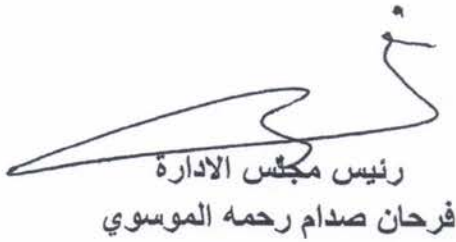 رئيس مجلس الادارة
فرحان صدام رحمه الموسوي